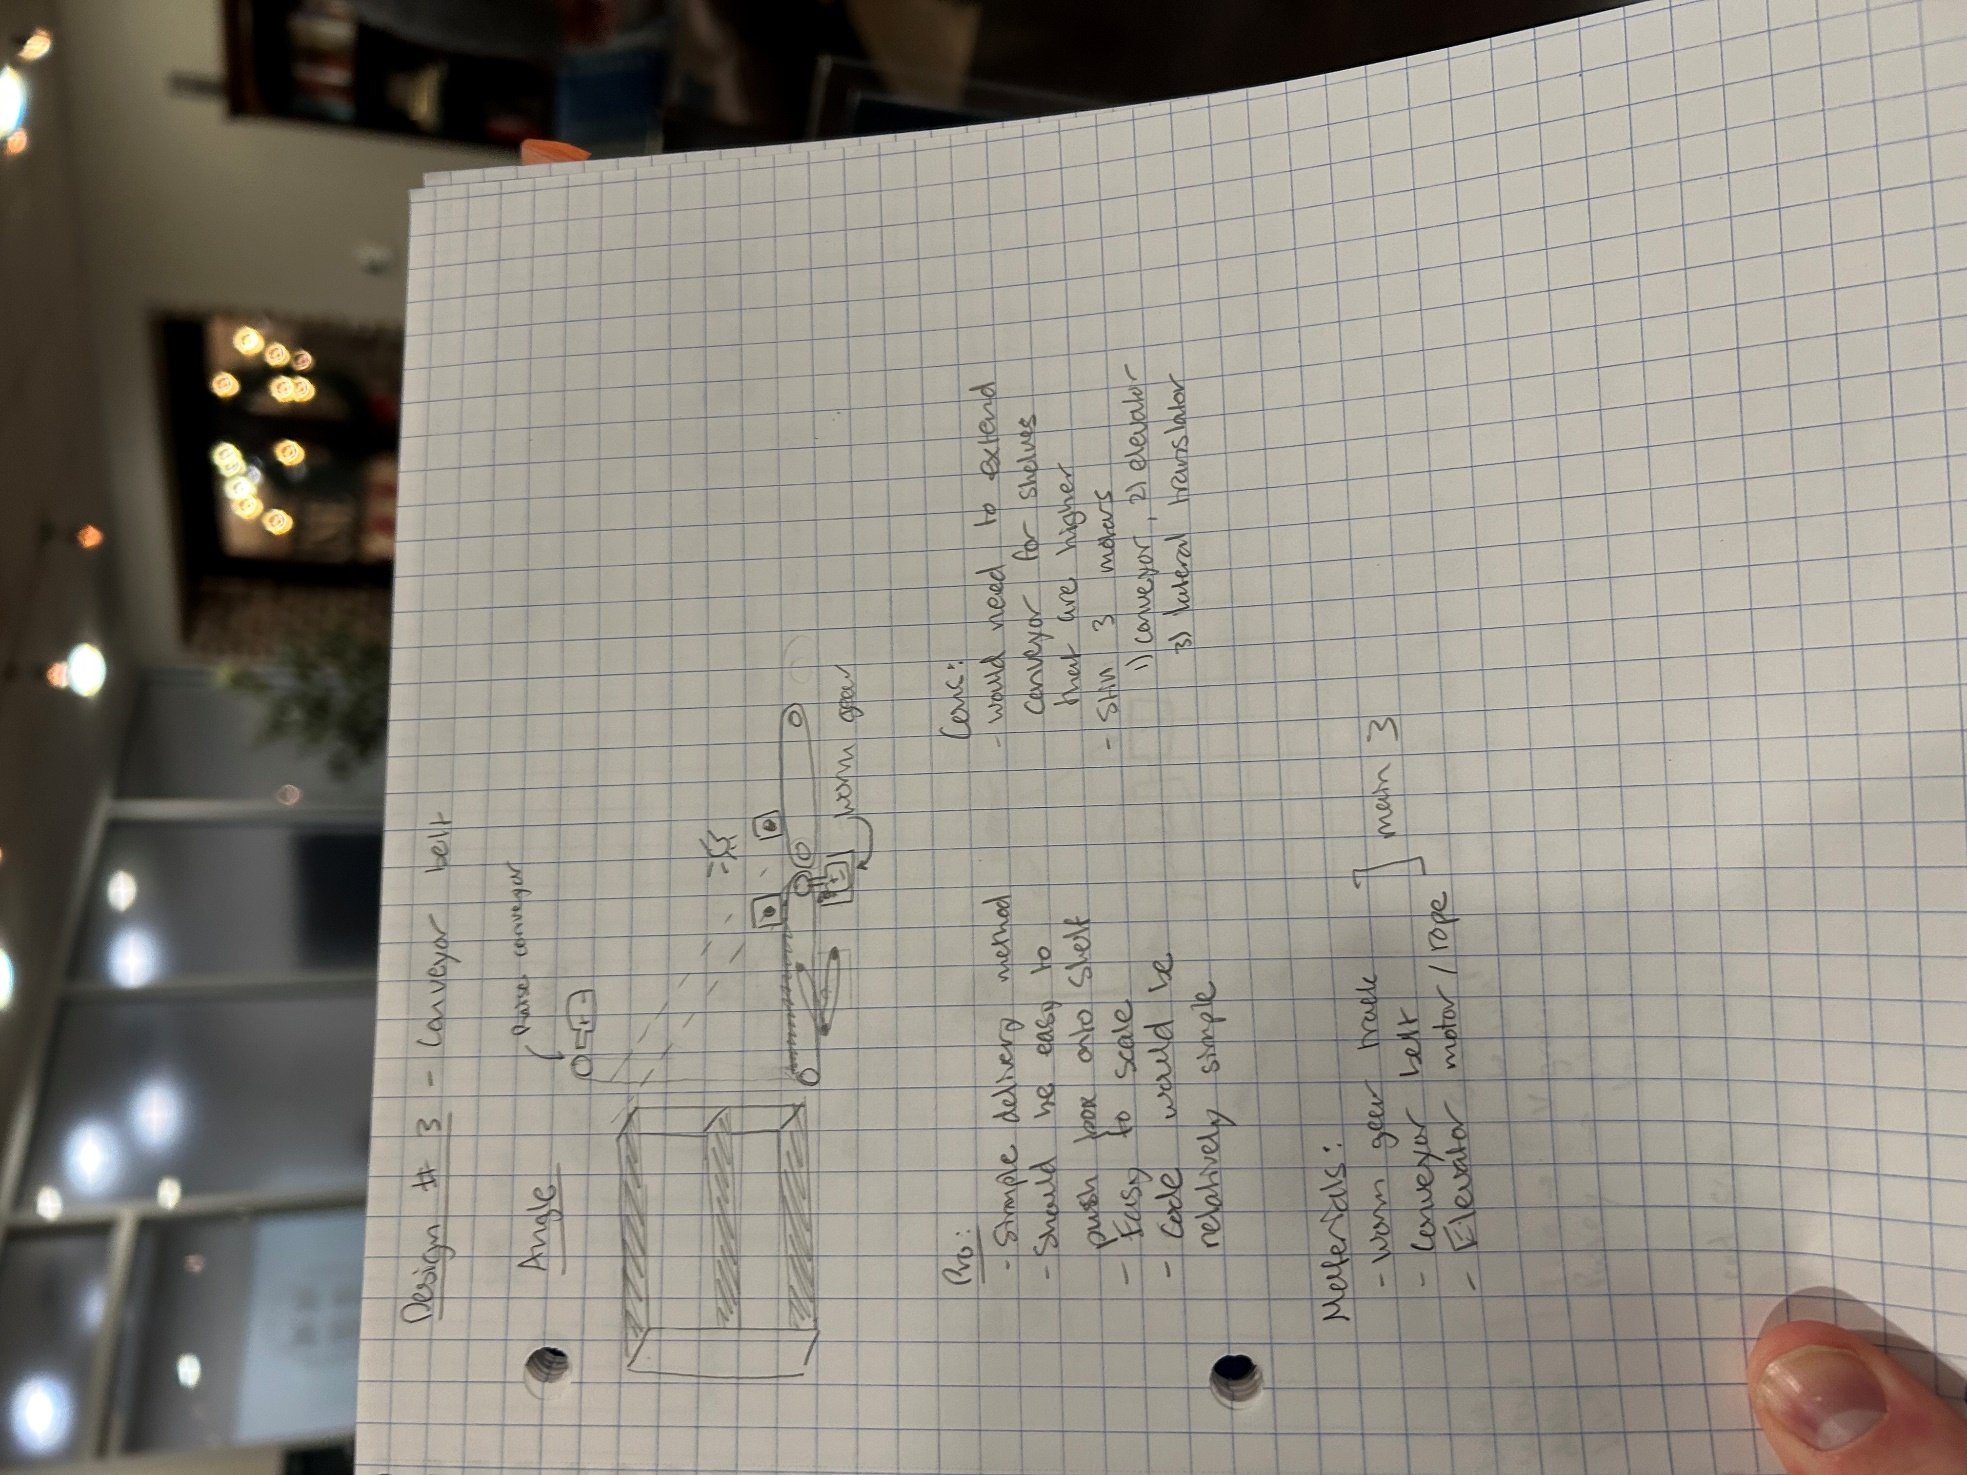 Design # 3 - Conveyor belt
Angle
Raise conveyor
worm gear
Pro:
- Simple delivery method
- Should be easy to
push box onto shelf
- Easy to scale
- Code would be
relatively simple
Cons:
- would need to extend
conveyor for shelves
that are higher
- Still 3 motors
1) conveyor, 2) elevator
3) lateral translator
Materials:
- worm gear track
- Conveyor belt
- Elevator motor / rope
main 3